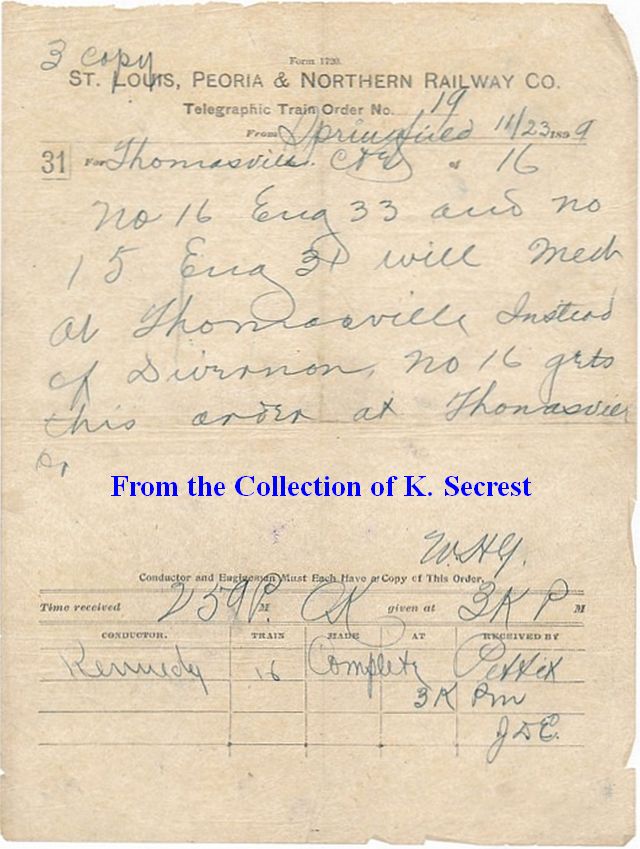 3 copy
Form 1720.
ST. LOUIS, PEORIA & NORTHERN RAILWAY CO.
Telegraphic Train Order No. 19
From Springfield 11/23 1899
31 For Thomasville C&E of 16
No 16 Eng 33 and no
15 Eng 31 will Meet
at Thomasville Instead
of Divernon, No 16 gets
this order at Thomasville
From the Collection of K. Secrest
W.H.G.
Conductor and Engineman Must Each Have a Copy of This Order.
Time received 259 P. M OK given at 3K P M
CONDUCTOR. TRAIN MADE AT RECEIVED BY
Kennedy 16 Complete Pettit
3K Pm
J D E.